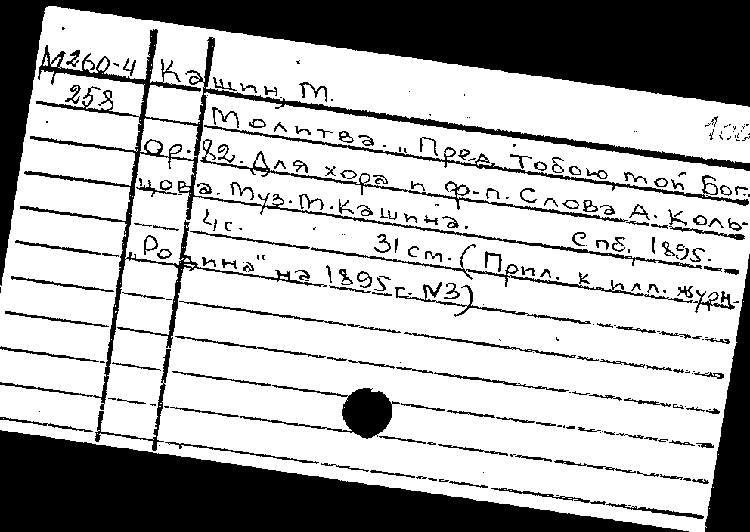 М260-4 Кашин, М.
258
100
Молитва. „Пред Тобою, мой Бог.
ор. 82. Для хора п ф-п. Слова А. Коль-
цова. Муз. М. Кашина. Спб, 1895.
4 с. 31 см. (Прил. к илл. журн.
„Родина" на 1895 г. N3)